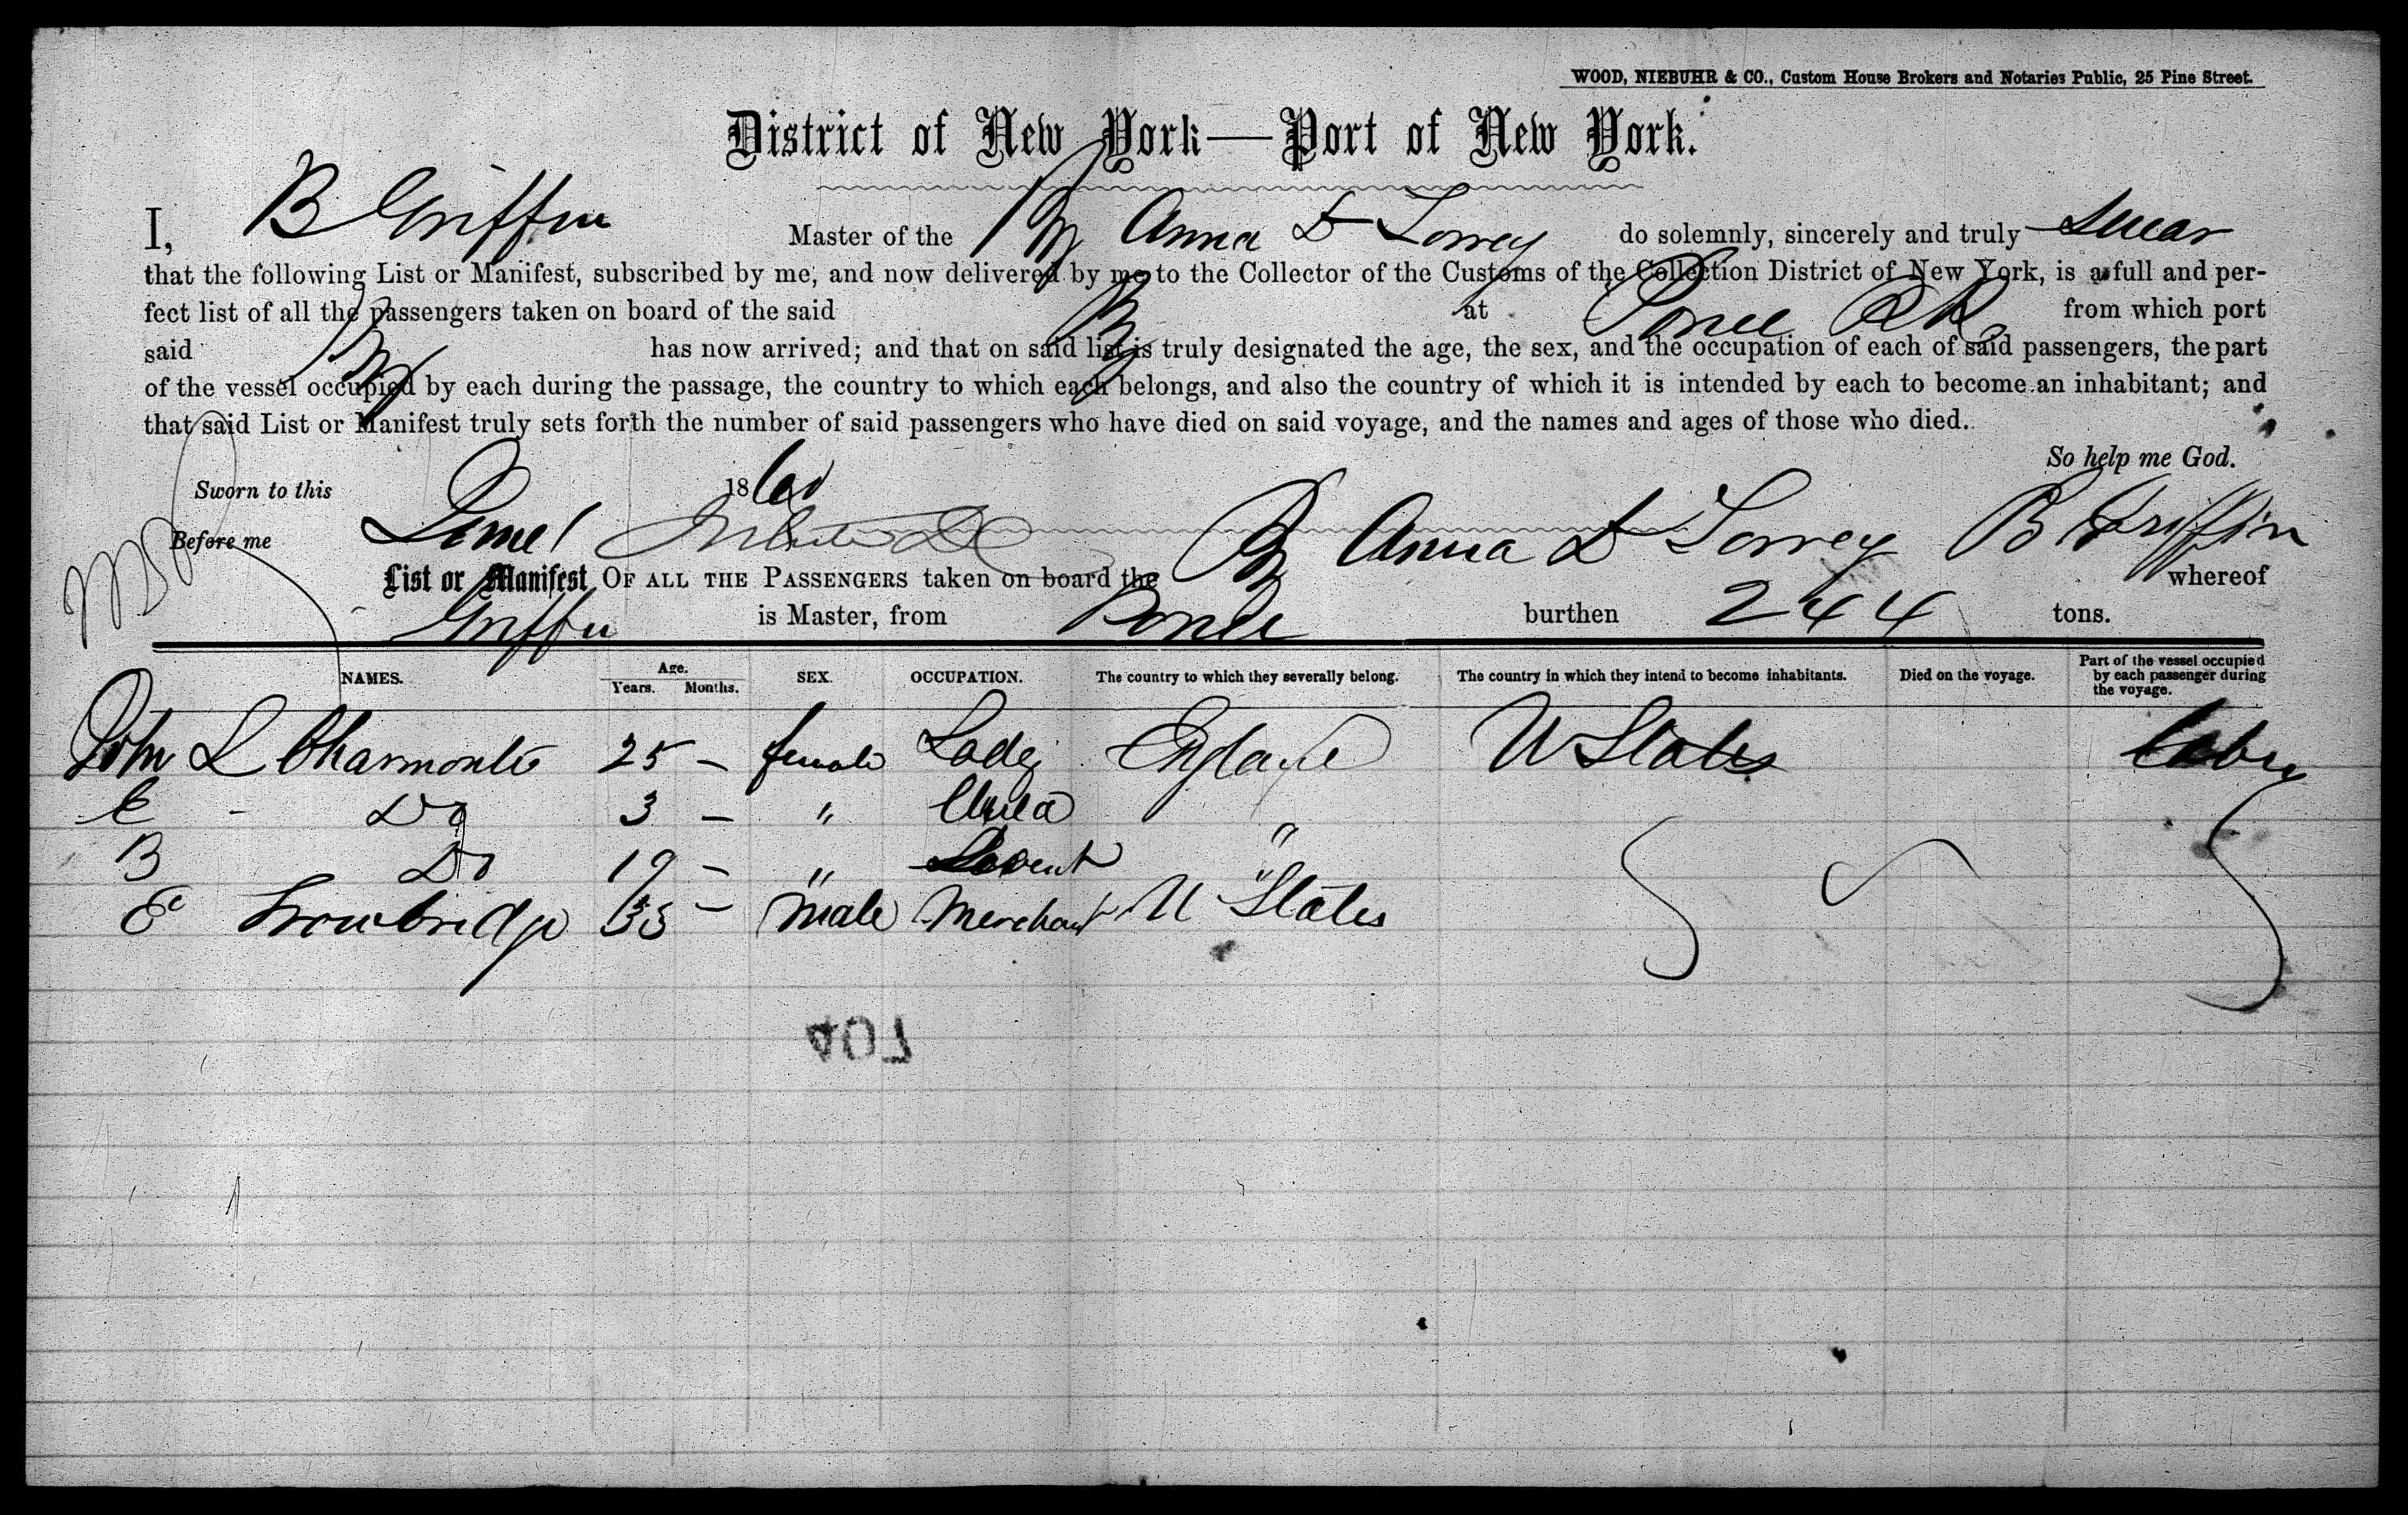 WOOD, NIEBUHR & CO., Custom House Brokers and Notaries Public, 25 Pine Street.
District of New York—Port of New York.
I, B Griffin Master of the Anna D Torrey do solemnly, sincerely and truly swear
that the following List or Manifest, subscribed by me, and now delivered by me to the Collector of the Customs of the Collection District of New York, is a full and per-
fect list of all the passengers taken on board of the said at Ponce P R from which port
said has now arrived; and that on said list is truly designated the age, the sex, and the occupation of each of said passengers, the part
of the vessel occupied by each during the passage, the country to which each belongs, and also the country of which it is intended by each to become an inhabitant; and
that said List or Manifest truly sets forth the number of said passengers who have died on said voyage, and the names and ages of those who died.
So help me God.
Sworn to this June 1 1860
Before me B Griffin
List or Manifest OF ALL THE PASSENGERS taken on board the Anna D Torrey whereof
Griffin is Master, from Ponce burthen 244 tons.
NAMES. Age. Years. Months. SEX. OCCUPATION. The country to which they severally belong. The country in which they intend to become inhabitants. Died on the voyage. Part of the vessel occupied by each passenger during the voyage.
John L 25 - female Lady England U States
C - Do 3 - "
B Do 19 - " "
E Trowbridge 35 - male Merchant U States
407